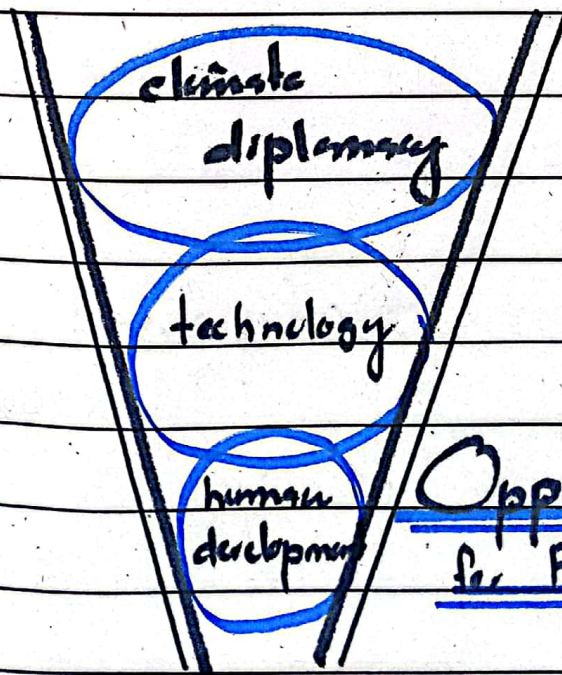 climate
diplomacy
technology
human
development
Opp
for